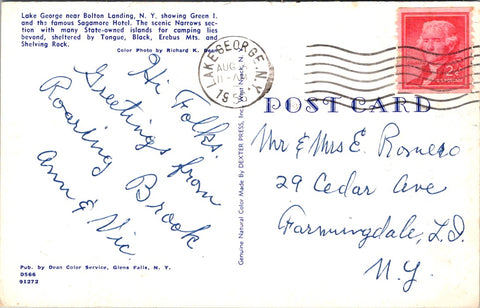 Lake George near Bolton Landing, N. Y., showing Green I.
and the famous Sagamore Hotel. The scenic Narrows sec-
tion with many State-owned islands for camping lies
beyond, sheltered by Tongue, Black, Erebus Mts. and
Shelving Rock.
Color Photo by Richard K.
LAKE GEORGE, N.Y.
AUG
11-AM
195
2¢
POST CARD
Hi Folks.
Greetings from
Roaring Brook
Ann & Vic.
Genuine Natural Color Made By DEXTER PRESS, Inc.
Mr & Mrs E. Romero
29 Cedar Ave
Farmingdale, L.I.
N.Y.
Pub. by Dean Color Service, Glens Falls, N. Y.
D566
91272